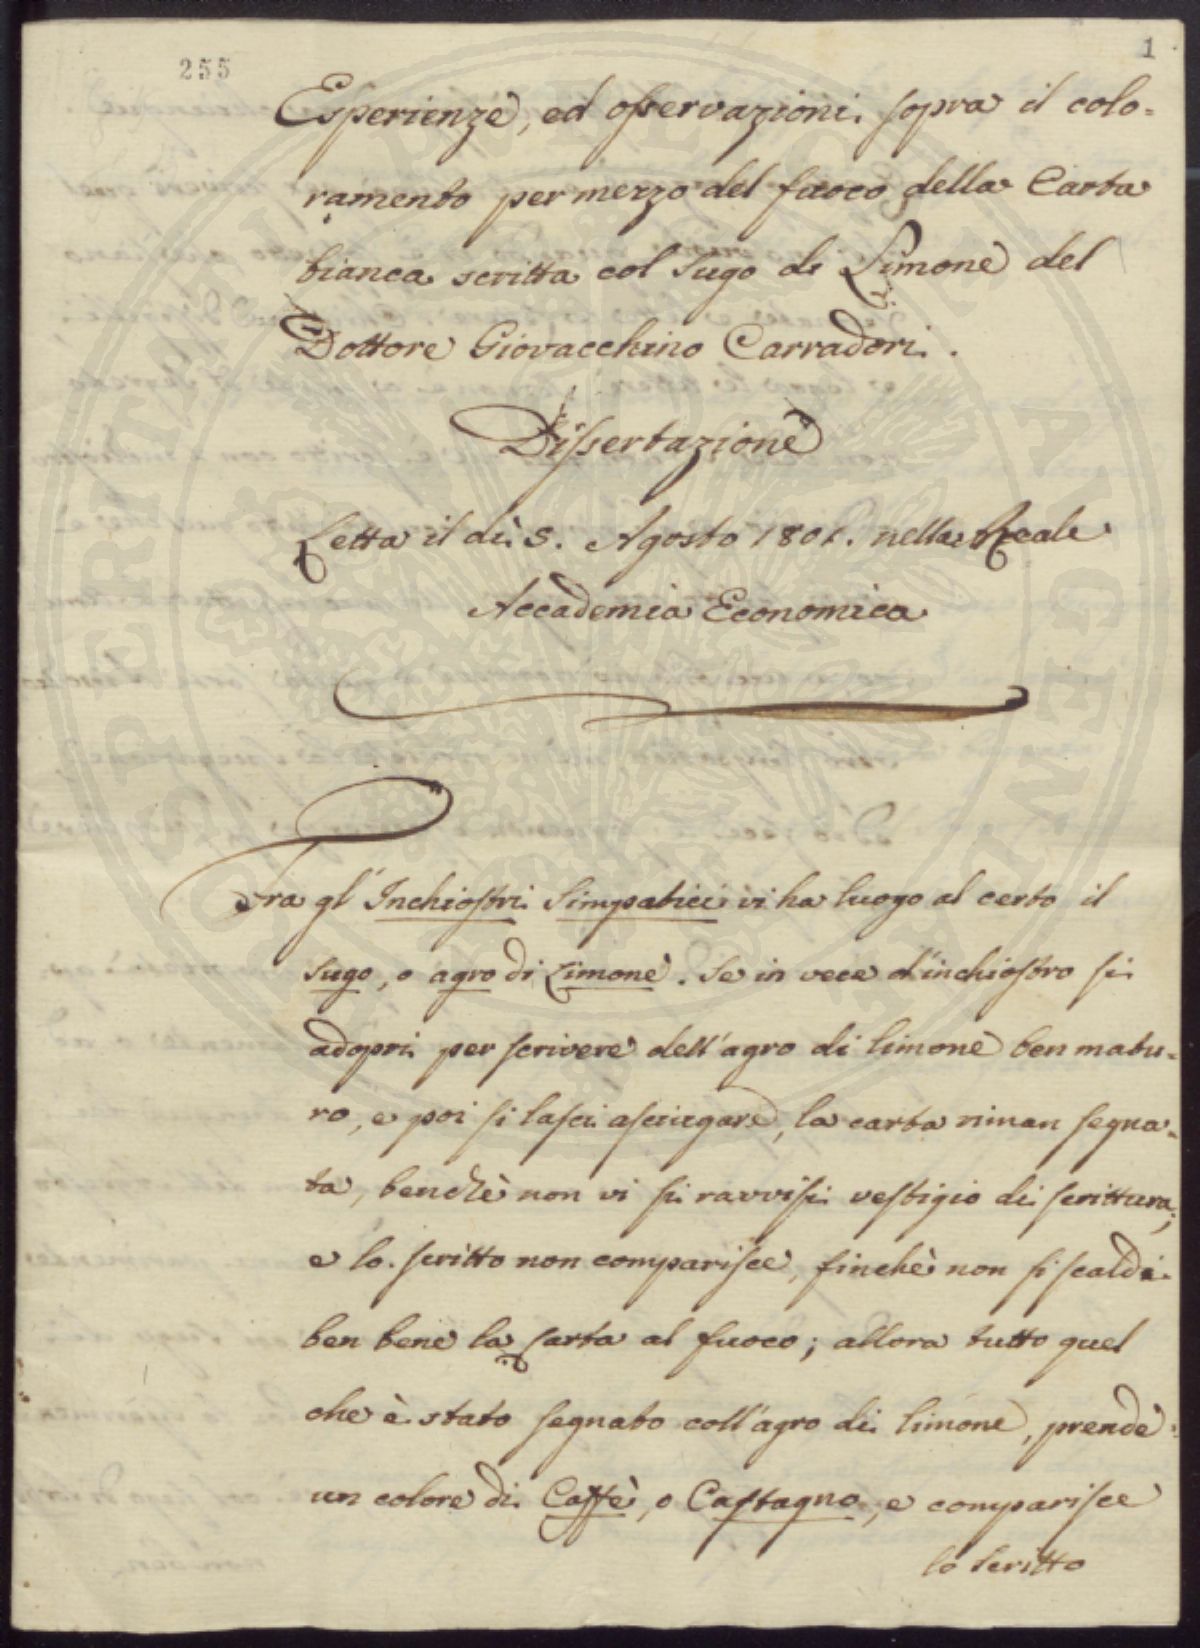 255
1
Esperienze, ed osservazioni sopra il colo-
ramento per mezzo del fuoco della Carta
bianca scritta col Sugo di Limone del
Dottore Giovacchino Carradori.
Dissertazione
Letta il dì 5. Agosto 1801. nella Reale
Accademia Economica
Fra gl' Inchiostri Simpatici vi ha luogo al certo il
Sugo, o agro di Limone. Se in vece d'inchiostro si
adopri per scrivere dell'agro di limone ben matu-
ro, e poi si lasci asciugare, la carta riman segna-
ta, benchè non vi si ravvisi vestigio di scrittura;
e lo scritto non comparisce, finchè non si scaldi
ben bene la Carta al fuoco; allora tutto quel
che è stato segnato coll'agro di limone, prende
un colore di Caffè, o Castagno, e comparisce
lo Scritto